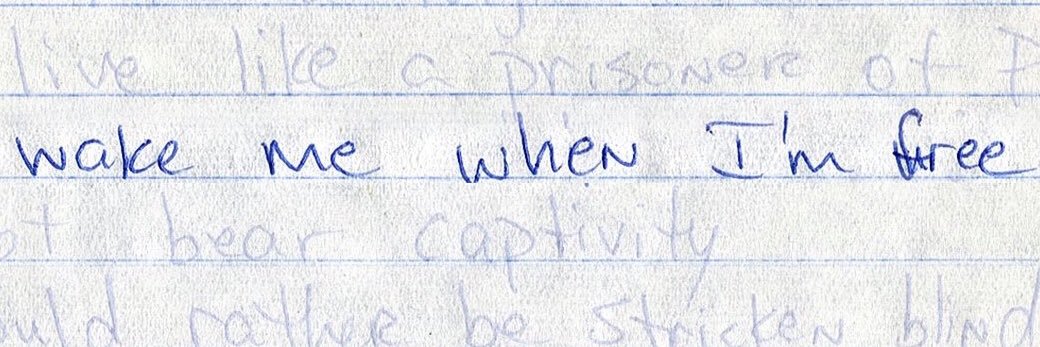 live like a prisoner of
wake me when I'm free
bear captivity
rather be stricken blind